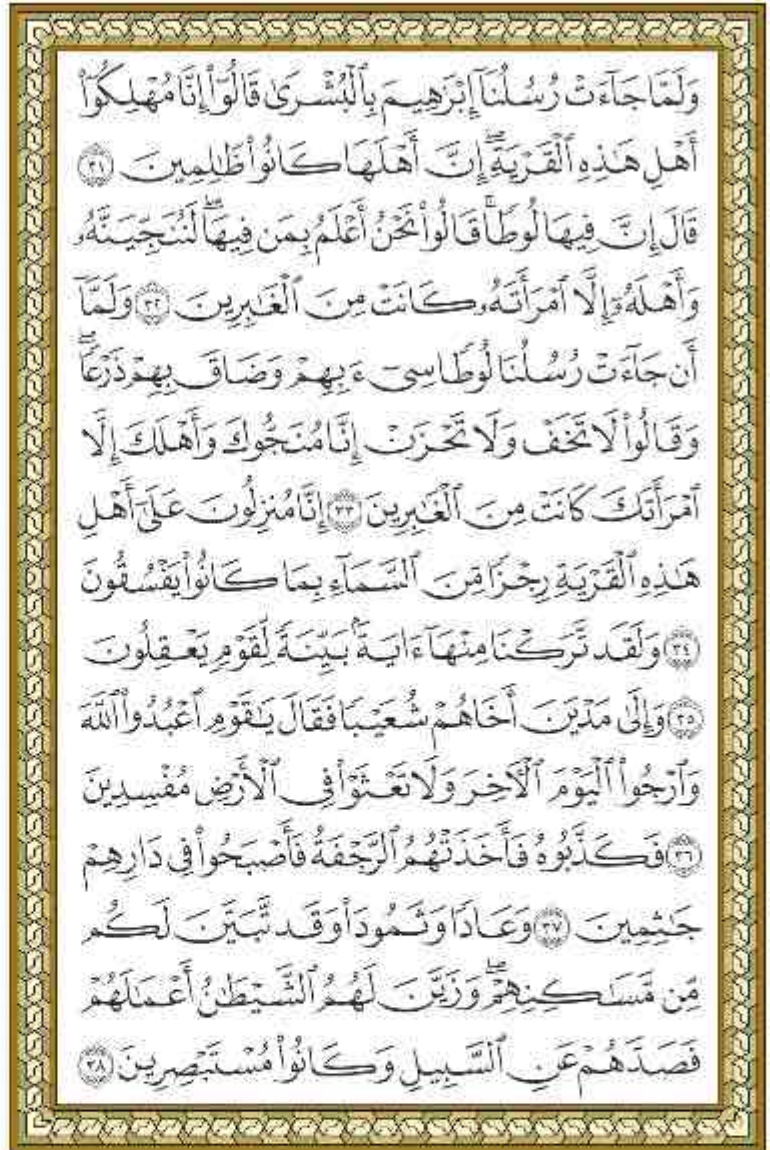 وَلَمَّا جَآءَتْ رُسُلُنَآ إِبْرَٰهِيمَ بِٱلْبُشْرَىٰ قَالُوٓا۟ إِنَّا مُهْلِكُوٓا۟
أَهْلِ هَٰذِهِ ٱلْقَرْيَةِ ۖ إِنَّ أَهْلَهَا كَانُوا۟ ظَٰلِمِينَ ٣١
قَالَ إِنَّ فِيهَا لُوطًا ۚ قَالُوا۟ نَحْنُ أَعْلَمُ بِمَن فِيهَا ۖ لَنُنَجِّيَنَّهُۥ
وَأَهْلَهُۥٓ إِلَّا ٱمْرَأَتَهُۥ كَانَتْ مِنَ ٱلْغَٰبِرِينَ ٣٢ وَلَمَّآ
أَن جَآءَتْ رُسُلُنَا لُوطًا سِىٓءَ بِهِمْ وَضَاقَ بِهِمْ ذَرْعًا ۖ
وَقَالُوا۟ لَا تَخَفْ وَلَا تَحْزَنْ إِنَّا مُنَجُّوكَ وَأَهْلَكَ إِلَّا
ٱمْرَأَتَكَ كَانَتْ مِنَ ٱلْغَٰبِرِينَ ٣٣ إِنَّا مُنزِلُونَ عَلَىٰٓ أَهْلِ
هَٰذِهِ ٱلْقَرْيَةِ رِجْزًا مِّنَ ٱلسَّمَآءِ بِمَا كَانُوا۟ يَفْسُقُونَ
٣٤ وَلَقَد تَّرَكْنَا مِنْهَآ ءَايَةًۢ بَيِّنَةً لِّقَوْمٍ يَعْقِلُونَ
٣٥ وَإِلَىٰ مَدْيَنَ أَخَاهُمْ شُعَيْبًا فَقَالَ يَٰقَوْمِ ٱعْبُدُوا۟ ٱللَّهَ
وَٱرْجُوا۟ ٱلْيَوْمَ ٱلْءَاخِرَ وَلَا تَعْثَوْا۟ فِى ٱلْأَرْضِ مُفْسِدِينَ
٣٦ فَكَذَّبُوهُ فَأَخَذَتْهُمُ ٱلرَّجْفَةُ فَأَصْبَحُوا۟ فِى دَارِهِمْ
جَٰثِمِينَ ٣٧ وَعَادًا وَثَمُودَا۟ وَقَد تَّبَيَّنَ لَكُم
مِّن مَّسَٰكِنِهِمْ ۖ وَزَيَّنَ لَهُمُ ٱلشَّيْطَٰنُ أَعْمَٰلَهُمْ
فَصَدَّهُمْ عَنِ ٱلسَّبِيلِ وَكَانُوا۟ مُسْتَبْصِرِينَ ٣٨